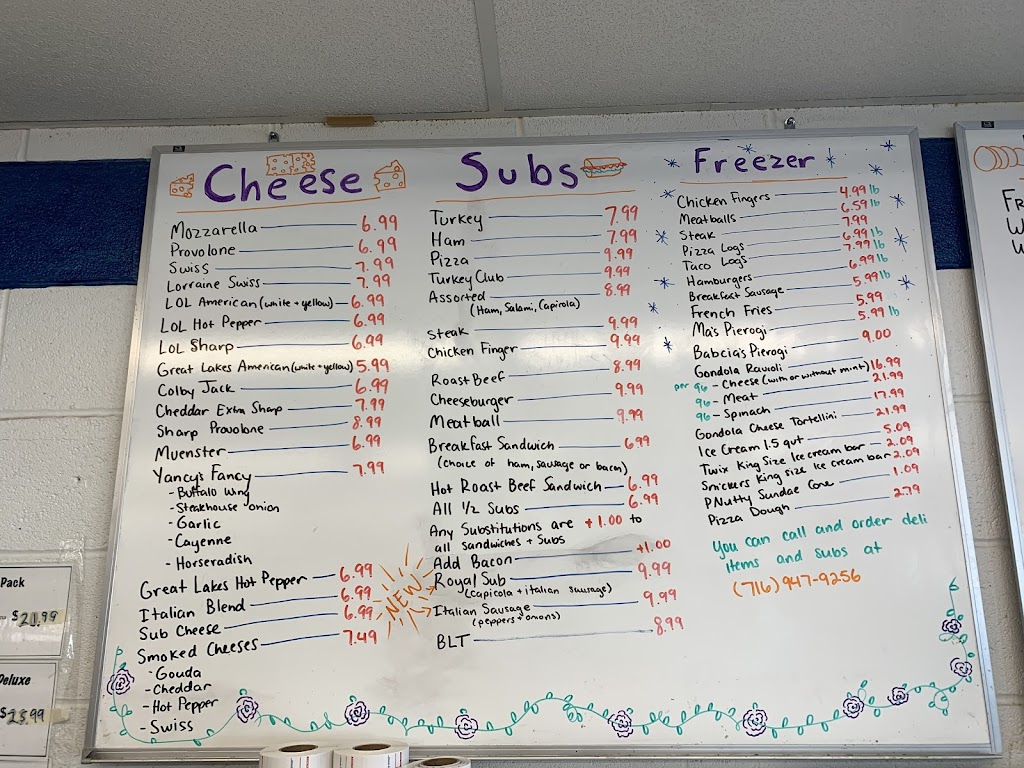 Cheese
Mozzarella 6.99
Provolone 6.99
Swiss 7.99
Lorraine Swiss 7.99
LOL American (white + yellow) 6.99
LOL Hot Pepper 6.99
LOL Sharp 6.99
Great Lakes American (white + yellow) 5.99
Colby Jack 6.99
Cheddar Extra Sharp 7.99
Sharp Provolone 8.99
Muenster 6.99
Yancy's Fancy 7.99
- Buffalo Wing
- Steakhouse onion
- Garlic
- Cayenne
- Horseradish
Great Lakes Hot Pepper 6.99
Italian Blend 6.99
Sub Cheese 6.99
Smoked Cheeses 7.49
- Gouda
- Cheddar
- Hot Pepper
- Swiss
Subs
Turkey 7.99
Ham 7.99
Pizza 9.99
Turkey Club 9.99
Assorted 8.99
(Ham, Salami, Capicola)
Steak 9.99
Chicken Finger 9.99
Roast Beef 8.99
Cheeseburger 9.99
Meatball 9.99
Breakfast Sandwich 6.99
(choice of ham, sausage or bacon)
Hot Roast Beef Sandwich 6.99
All 1/2 Subs 6.99
Any Substitutions are +1.00 to
all sandwiches + Subs
Add Bacon +1.00
NEW
Royal Sub 9.99
(capicola + italian sausage)
Italian Sausage 9.99
(peppers + onions)
BLT 8.99
Freezer
Chicken Fingers 4.99 lb
Meatballs 6.59 lb
Steak 7.99
Pizza Logs 6.99 lb
Taco Logs 7.99 lb
Hamburgers 6.99 lb
Breakfast Sausage 5.99 lb
French Fries 5.99
Ma's Pierogi 5.99 lb
Babcia's Pierogi 9.00
Gondola Ravioli
per 96 - Cheese (with or without mint) 16.99
96 - Meat 21.99
96 - Spinach 17.99
Gondola Cheese Tortellini 21.99
Ice Cream 1.5 qut 5.09
Twix King Size Ice cream bar 2.09
Snickers King size Ice cream bar 2.09
PNutty Sundae Cone 1.09
Pizza Dough 2.79
You can call and order deli
items and subs at
(716) 947-9256
Pack
- $20.99
Deluxe